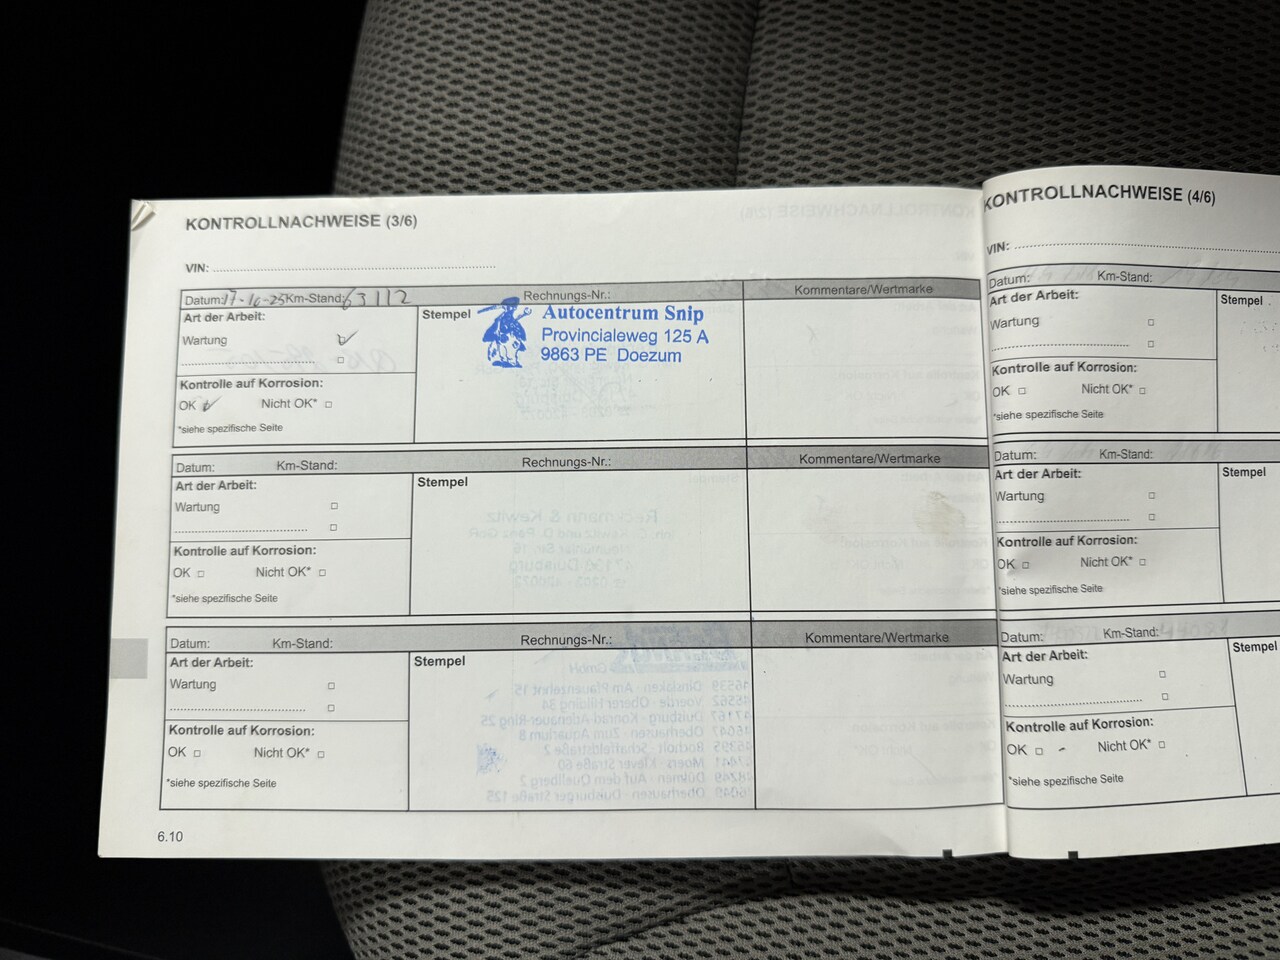 KONTROLLNACHWEISE (3/6)
VIN:
Datum: 17-10-25 Km-Stand: 63112 Rechnungs-Nr.: Kommentare/Wertmarke
Art der Arbeit:
Wartung
Kontrolle auf Korrosion:
OK Nicht OK*
*siehe spezifische Seite
Stempel
Autocentrum Snip
Provincialeweg 125 A
9863 PE Doezum
Datum: Km-Stand: Rechnungs-Nr.: Kommentare/Wertmarke
Art der Arbeit:
Wartung
Kontrolle auf Korrosion:
OK Nicht OK*
*siehe spezifische Seite
Stempel
Datum: Km-Stand: Rechnungs-Nr.: Kommentare/Wertmarke
Art der Arbeit:
Wartung
Kontrolle auf Korrosion:
OK Nicht OK*
*siehe spezifische Seite
Stempel
6.10
KONTROLLNACHWEISE (4/6)
VIN:
Datum: Km-Stand:
Art der Arbeit:
Wartung
Kontrolle auf Korrosion:
OK Nicht OK*
*siehe spezifische Seite
Stempel
Datum: Km-Stand:
Art der Arbeit:
Wartung
Kontrolle auf Korrosion:
OK Nicht OK*
*siehe spezifische Seite
Stempel
Datum: Km-Stand:
Art der Arbeit:
Wartung
Kontrolle auf Korrosion:
OK Nicht OK*
*siehe spezifische Seite
Stempel